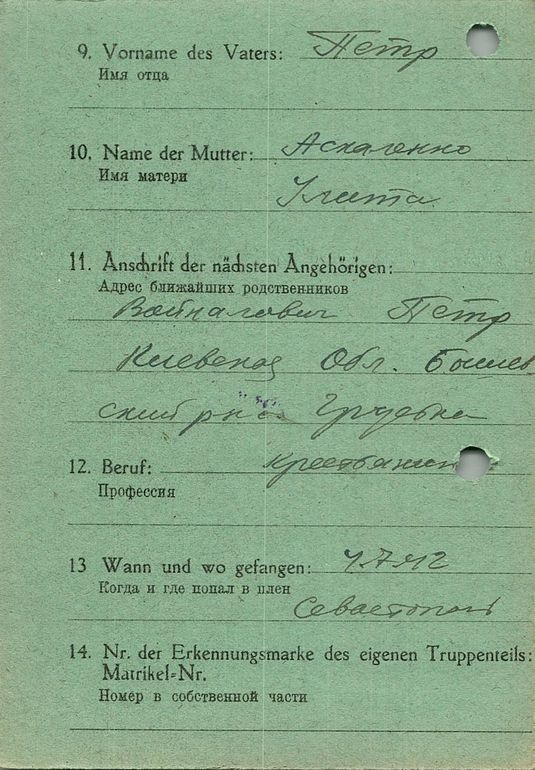 9. Vorname des Vaters: Пётр
Имя отца
10. Name der Mutter: Аскаленко
Имя матери
Улита
11. Anschrift der nächsten Angehörigen:
Адрес ближайших родственников
Войналович Пётр
Киевской Обл. Бышев
ский р-н с. Грузька
12. Beruf: крестьянин
Профессия
13 Wann und wo gefangen: 4.7.42
Когда и где попал в плен
Севастополь
14. Nr. der Erkennungsmarke des eigenen Truppenteils:
Matrikel-Nr.
Номер в собственной части